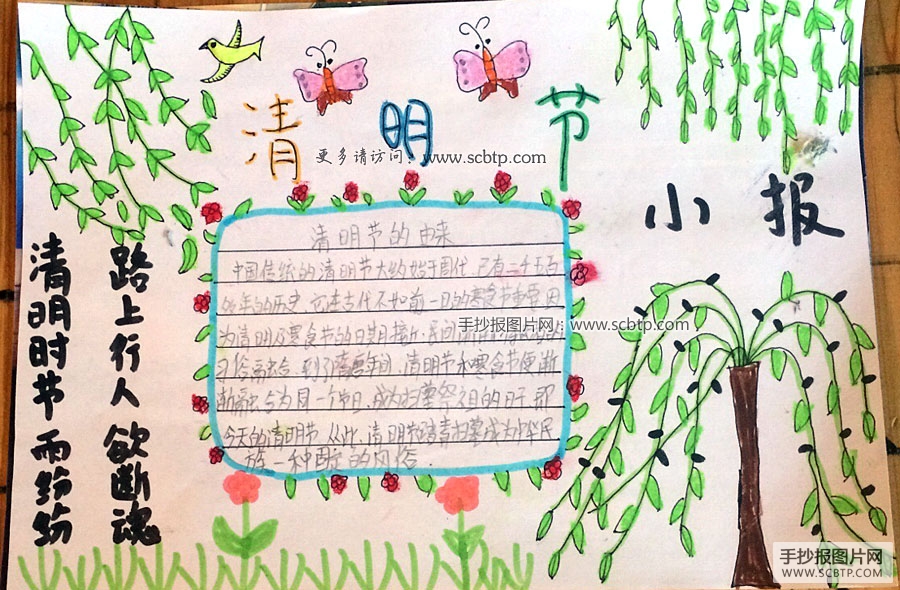 清明节
更多请访问：www.scbtp.com
小报
清明节的由来
中国传统的清明节大约始于周代，已有二千五百
余年的历史，它在古代不如前一日的寒食节重要，因
为清明及寒食节的日期接近，民间
手抄报图片网：www.scbtp.com
习俗融合，到了隋唐年间，清明节和寒食节便渐
渐融合为同一个节日，成为扫墓祭祖的日子，即
今天的清明节，从此，清明节踏青扫墓成为中华民
族一种固定的风俗.
清明时节雨纷纷
路上行人欲断魂
手抄报图片网
WWW.SCBTP.COM